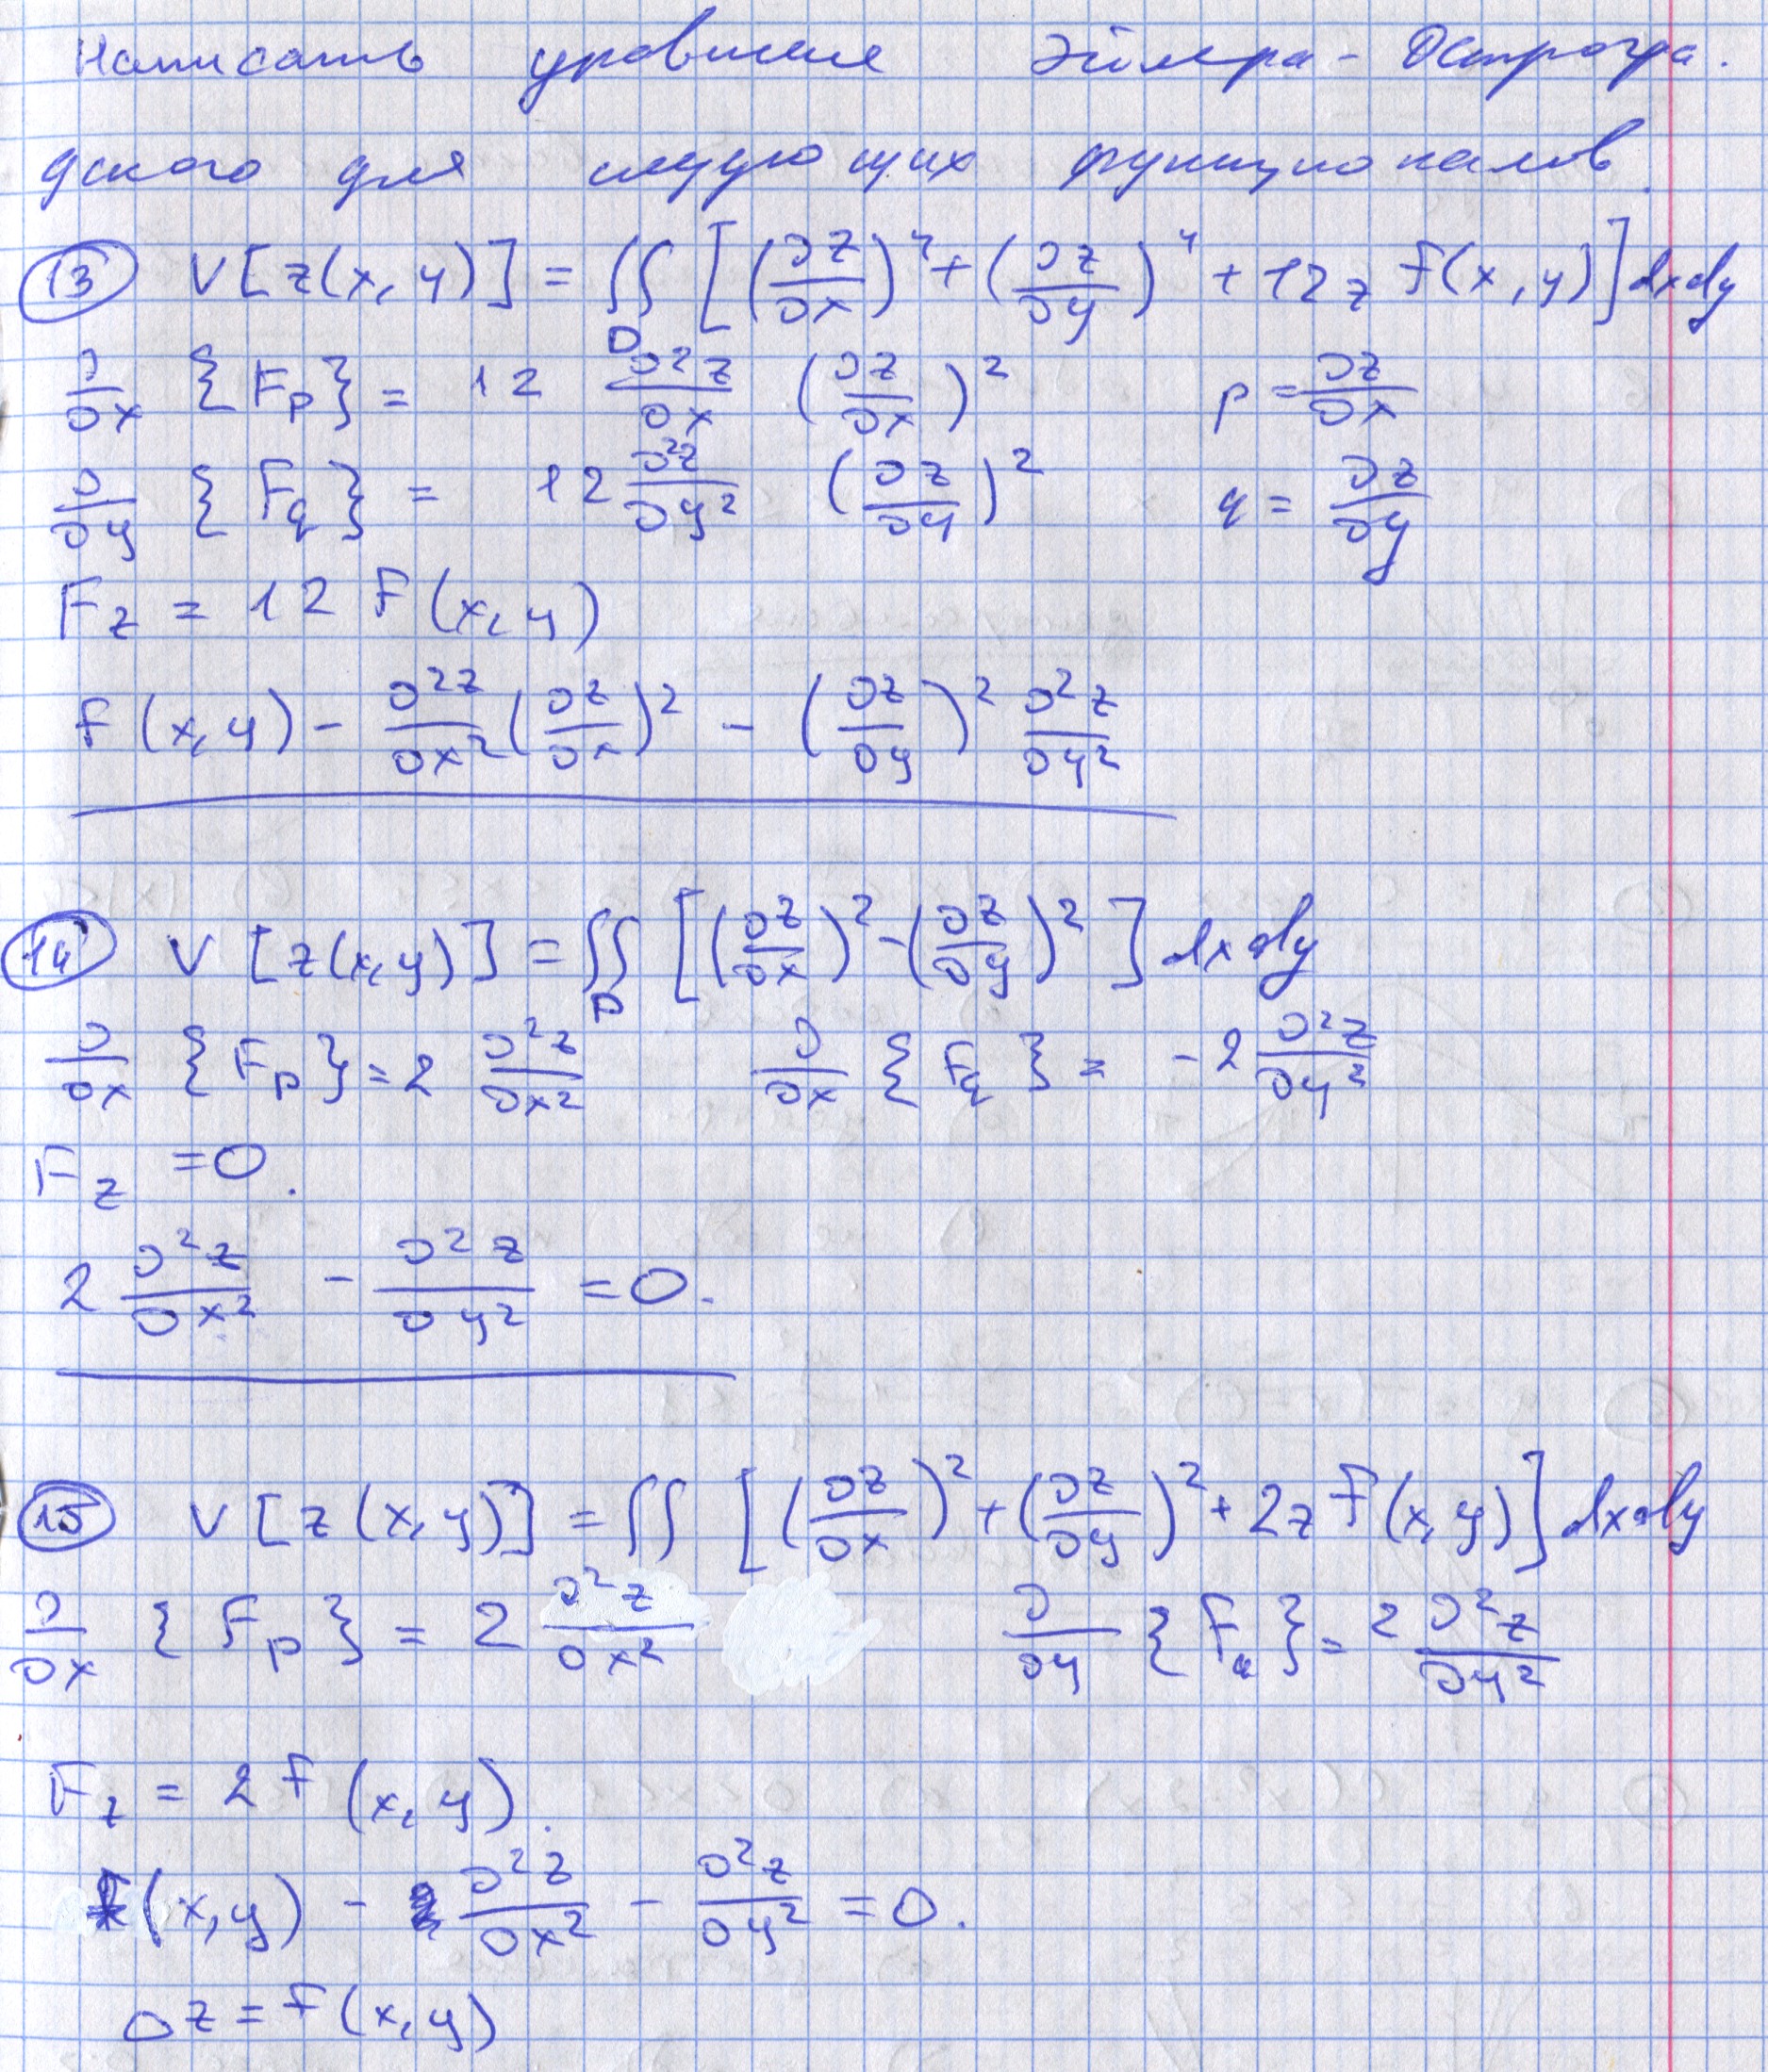 Написать уравнение Эйлера-Острогра.
дского для следующих функционалов.
13 V[z(x,y)] = ∬_D [(∂z/∂x)^4 + (∂z/∂y)^4 + 12z f(x,y)] dxdy
∂/∂x {F_p} = 12 ∂²z/∂x (∂z/∂x)² p = ∂z/∂x
∂/∂y {F_q} = 12 ∂²z/∂y² (∂z/∂y)² q = ∂z/∂y
F_z = 12 f(x,y)
f(x,y) - ∂²z/∂x² (∂z/∂x)² - (∂z/∂y)² ∂²z/∂y²
14 V[z(x,y)] = ∬_D [(∂z/∂x)² - (∂z/∂y)²] dxdy
∂/∂x {F_p} = 2 ∂²z/∂x² ∂/∂x {F_q} = -2 ∂²z/∂y²
F_z = 0.
2 ∂²z/∂x² - ∂²z/∂y² = 0.
15 V[z(x,y)] = ∬ [(∂z/∂x)² + (∂z/∂y)² + 2z f(x,y)] dxdy
∂/∂x {F_p} = 2 ∂²z/∂x² ∂/∂y {F_q} = 2 ∂²z/∂y²
F_z = 2 f(x,y).
f(x,y) - ∂²z/∂x² - ∂²z/∂y² = 0.
Δz = f(x,y)